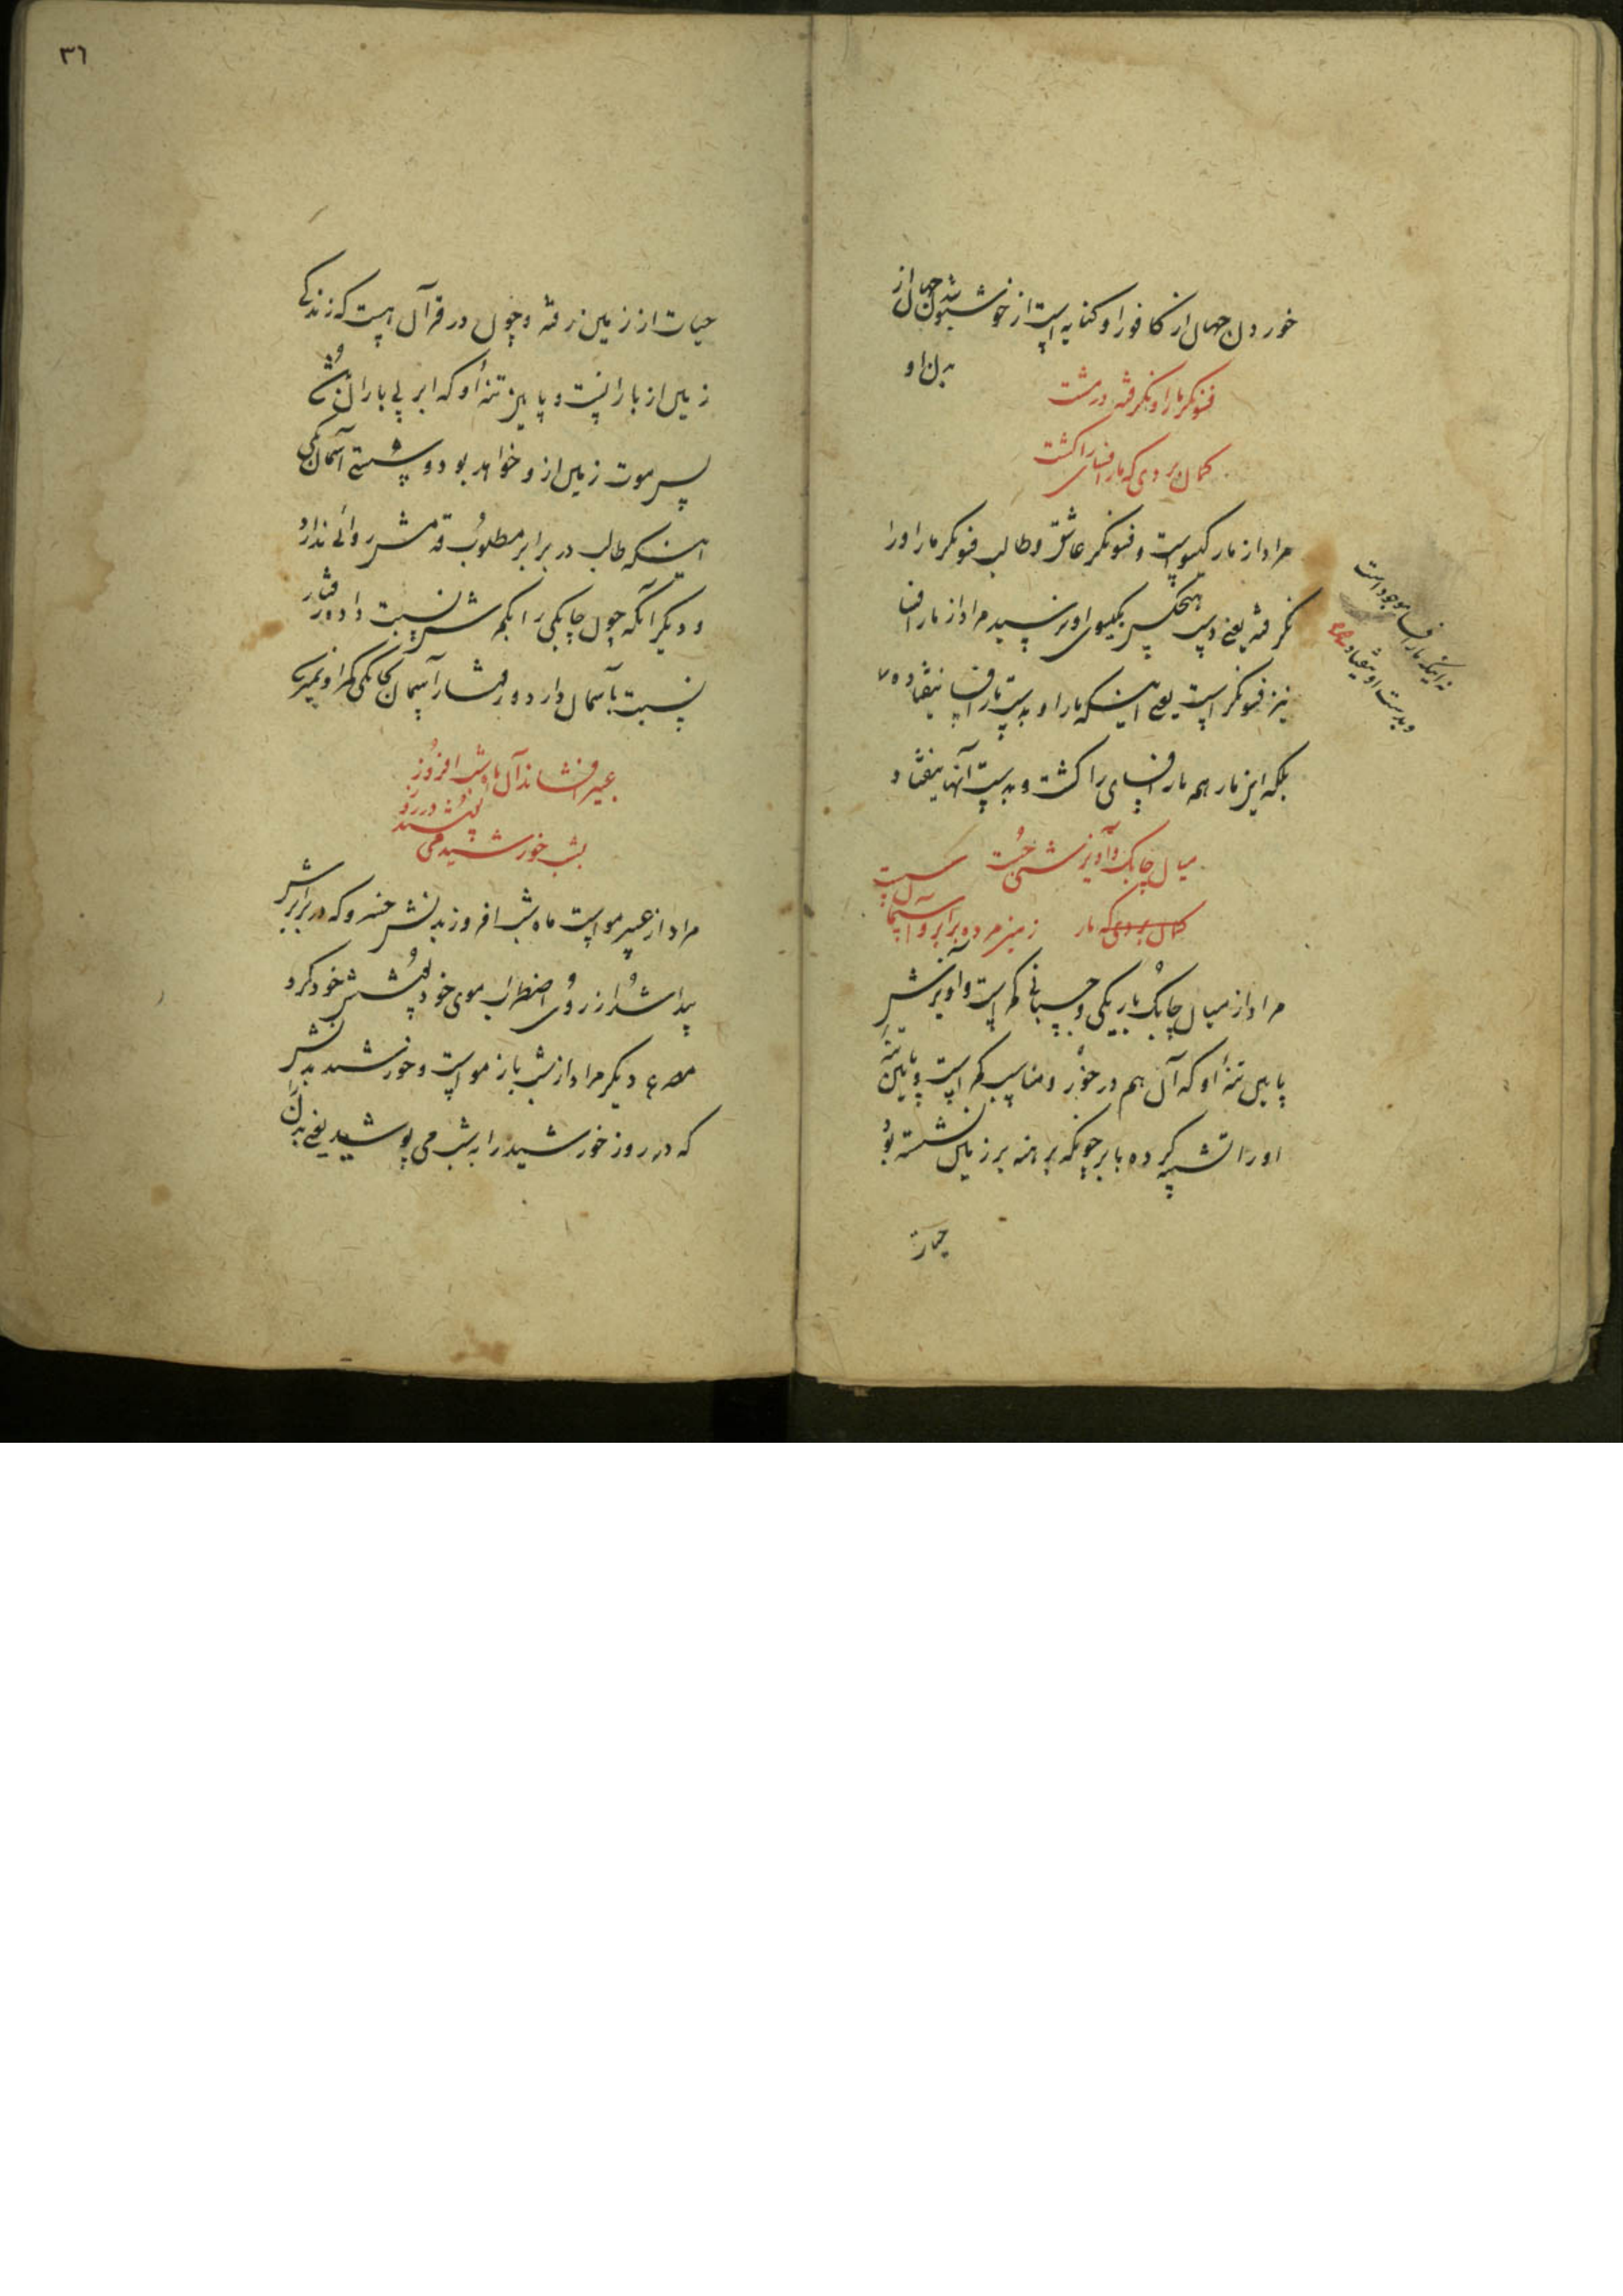 خوردن جهان از کافور او کنایه است از خوشبو شدن جهان از
بدن او
فسونگر مار او نگرفته در مشت
گمان بردی که مار افسای را کشت
مراد از مار گیسوست و فسونگر عاشق و طالب فسونگر مار او را
نگرفته یعنی دست هیچکس بگیسوی او نرسیده مراد از مار افسا
نیز فسونگر است یعنی اینکه مار او بدست مار افسا نیفتاده
بلکه این مار هم مار افسای را کشت و بدست آنها نیفتاد
نه اینکه مار افسا موجود است
و بدست او نیفتاد صح
میان چابک و آویزشش چست
گمان بردی که مار زمین مرده برابر و آسمان سست
مراد از میان چابک باریکی و چسپانی کمر است و آویزش
پایین تنه او که آن هم در خور و مناسب کمر است و پایین تنه
او را تشبیه کرده بابر چونکه برهنه بر زمین نشسته بود
حیات
٣٦
حیات از زمین رفته و چون در قرآن هست که زندگی
زمین از بارانست و پایین تنه او که ابر بی باران شد
پس موت زمین ازو خواهد بود و سستی آسمان یکی
اینکه طالب در برابر مطلوب قدمش روائی ندارد
و دیگر آنکه چون چابکی را بکمرش نسبت داده رفتار
نسبت بآسمان دارد و رفتار آسمان بچابکی کمر او نمیرسد
عبیر افشاند آن ماه شب افروز
بشب خورشید می پوشید در روز
مراد از عبیر مو است ماه شب افروز بدنش خسرو که در برابرش
پیدا شد از روی اضطراب موی خود پوشش خود کرد
مصرع دیگر مراد از شب باز مو است و خورشید بدنش
که در روز خورشید را به شب می پوشید یعنی بدن